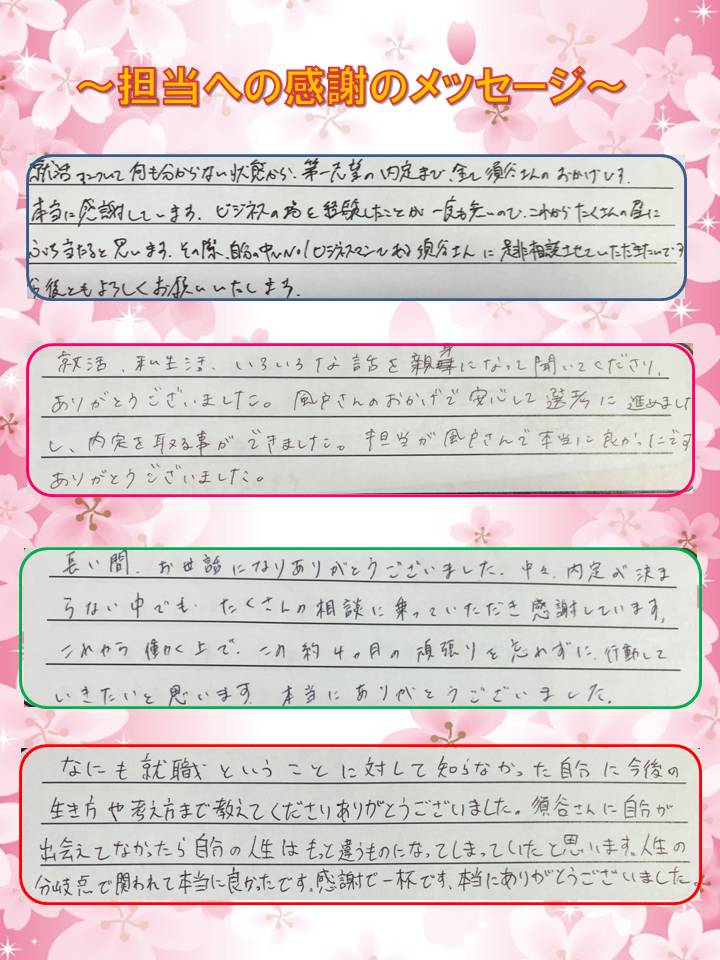 ～担当への感謝のメッセージ～
就活について何も分からない状態から、第一志望の内定まで、全て須谷さんのおかげです。
本当に感謝しています。ビジネスの場を経験したことが一度も無いので、これからたくさんの壁に
ぶち当たると思います。その際、自分の中でNo.1ビジネスマンである須谷さんに是非相談させていただきたいです
今後ともよろしくお願いいたします。
就活、私生活、いろいろな話を親身になって聞いてくださり、
ありがとうございました。風戸さんのおかげで安心して選考に進めました
し、内定を取る事ができました。担当が風戸さんで本当に良かったです
ありがとうございました。
長い間、お世話になりありがとうございました。中々、内定が決ま
らない中でも、たくさんの相談に乗っていただき感謝しています。
これから働く上で、この約4ヶ月の頑張りを忘れずに、行動して
いきたいと思います。本当にありがとうございました。
なにも就職ということに対して知らなかった自分に今後の
生き方や考え方まで教えてくださりありがとうございました。須谷さんに自分が
出会えてなかったら自分の人生はもっと違うものになってしまっていたと思います。人生の
分岐点で関われて本当に良かったです。感謝で一杯です、本当にありがとうございました。